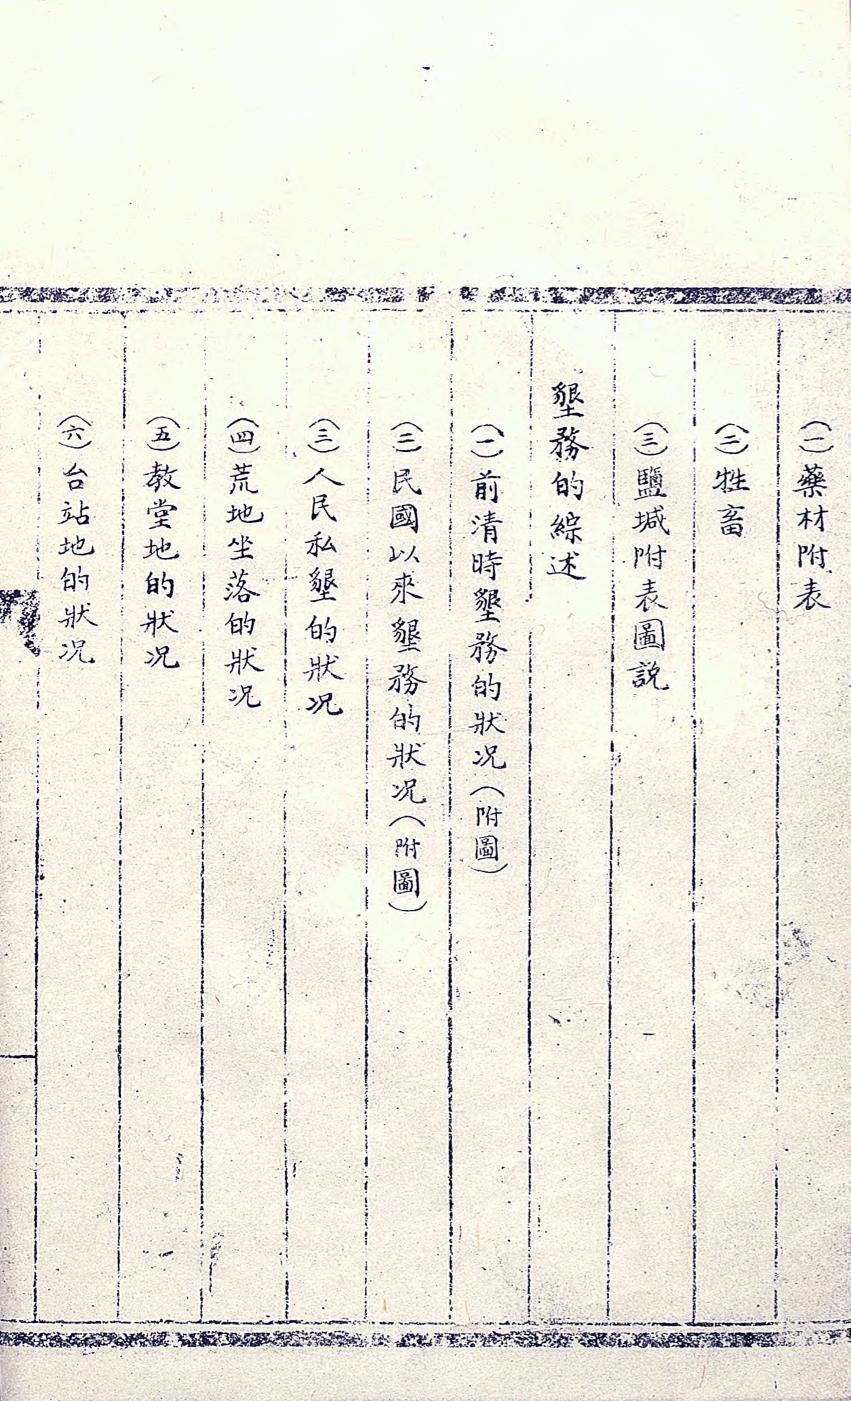 (一)藥材附表
(二)牲畜
(三)鹽堿附表圖説
墾務的綜述
(一)前清時墾務的狀况(附圖)
(二)民國以來墾務的狀况(附圖)
(三)人民私墾的狀况
(四)荒地坐落的狀况
(五)教堂地的狀况
(六)台站地的狀况